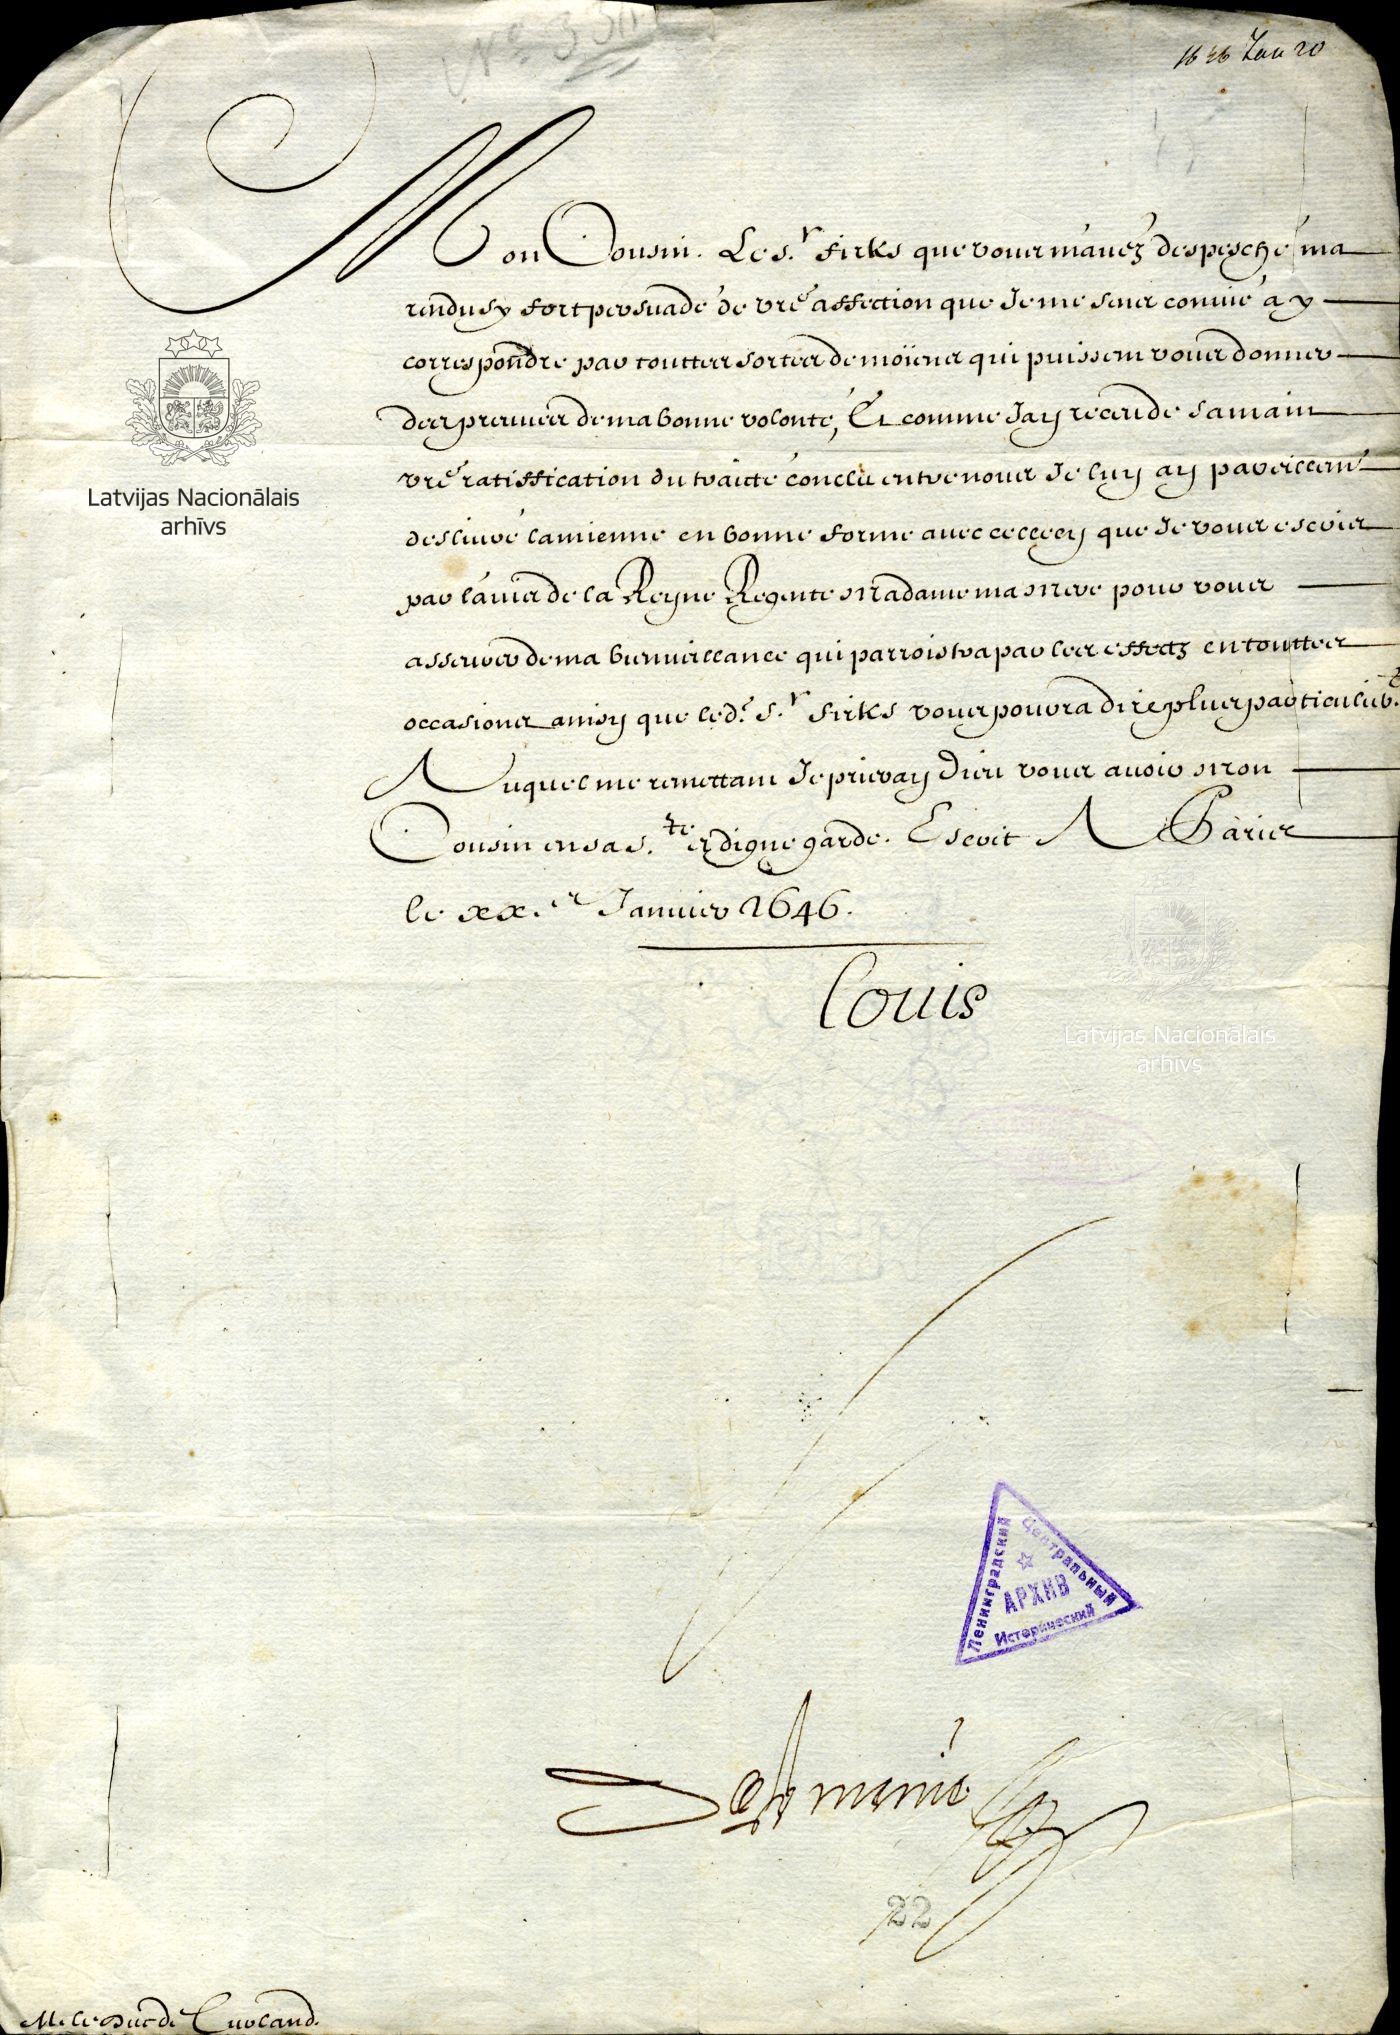 1646 Jan 20
Mon Cousin. Le S.r Firks que vous m'auéz despesché ma
rendu sy fort persuadé de vre affection que Je me sens conuié a y
correspondre par touttes sortes de moïens qui puissent vous donner
des preuues de ma bonne volonté, Et comme Jay receu de sa main
vre ratiffication du traicté conclu entre nous Je luy ay pareillemt
desliuré la mienne en bonne forme auec celle cy que Je vous escris
par l'auis de la Reyne Regente Madame ma Mere pour vous
asseurer de ma bienueillance qui parroistra par les effectz en touttes
occasions ainsy que led.t S.r Firks vous pourra dire plus particulier.t
Auquel me remettant Je prieray Dieu vous auoir Mon
Cousin en sa S.te et digne garde. Escrit A Paris
le xx.e Januier 1646.
Louis
Latvijas Nacionālais
arhīvs
Latvijas Nacionālais
arhīvs
Ленинградский
Центральный
Исторический
АРХИВ
De Lomenie
22
M. le Duc de Curland.